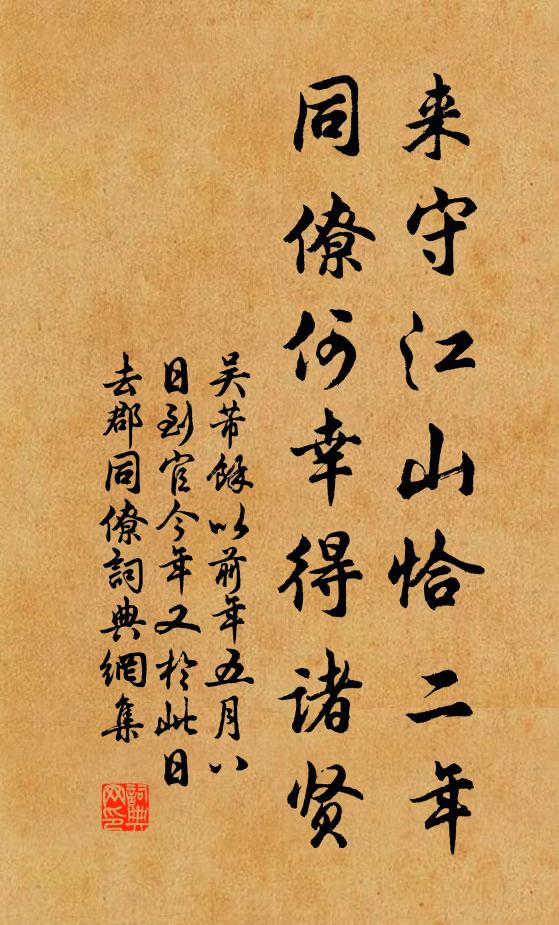 来守江山恰二年
同僚何幸得诸贤
吴芾馀以前年五月八
日到官今年又於此日
去郡同僚詞典網集
詞典網印